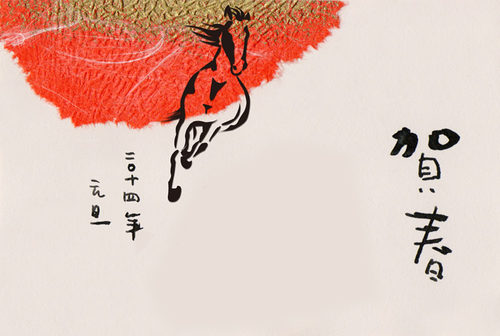 賀春
二〇十四年
元旦